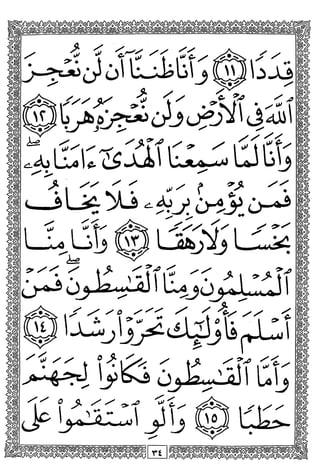 قِدَدًا ١١ وَأَنَّا ظَنَنَّآ أَن لَّن نُّعْجِزَ
ٱللَّهَ فِى ٱلْأَرْضِ وَلَن نُّعْجِزَهُۥ هَرَبًا ١٢
وَأَنَّا لَمَّا سَمِعْنَا ٱلْهُدَىٰٓ ءَامَنَّا بِهِۦۖ
فَمَن يُؤْمِنۢ بِرَبِّهِۦ فَلَا يَخَافُ
بَخْسًا وَلَا رَهَقًا ١٣ وَأَنَّا مِنَّا
ٱلْمُسْلِمُونَ وَمِنَّا ٱلْقَٰسِطُونَۖ فَمَنْ
أَسْلَمَ فَأُو۟لَٰٓئِكَ تَحَرَّوْا۟ رَشَدًا ١٤
وَأَمَّا ٱلْقَٰسِطُونَ فَكَانُوا۟ لِجَهَنَّمَ
حَطَبًا ١٥ وَأَلَّوِ ٱسْتَقَٰمُوا۟ عَلَى
٣٤